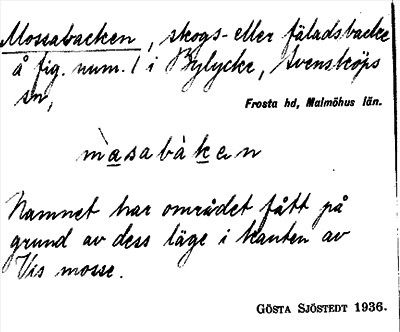 Mossabacken, skogs- eller fäladsbacke
å fig. num. 1 i Bylycke, Svensköps
sn,
Frosta hd, Malmöhus län.
màsabàken
Namnet har området fått på
grund av dess läge i kanten av
Vis mosse.
GÖSTA SJÖSTEDT 1936.